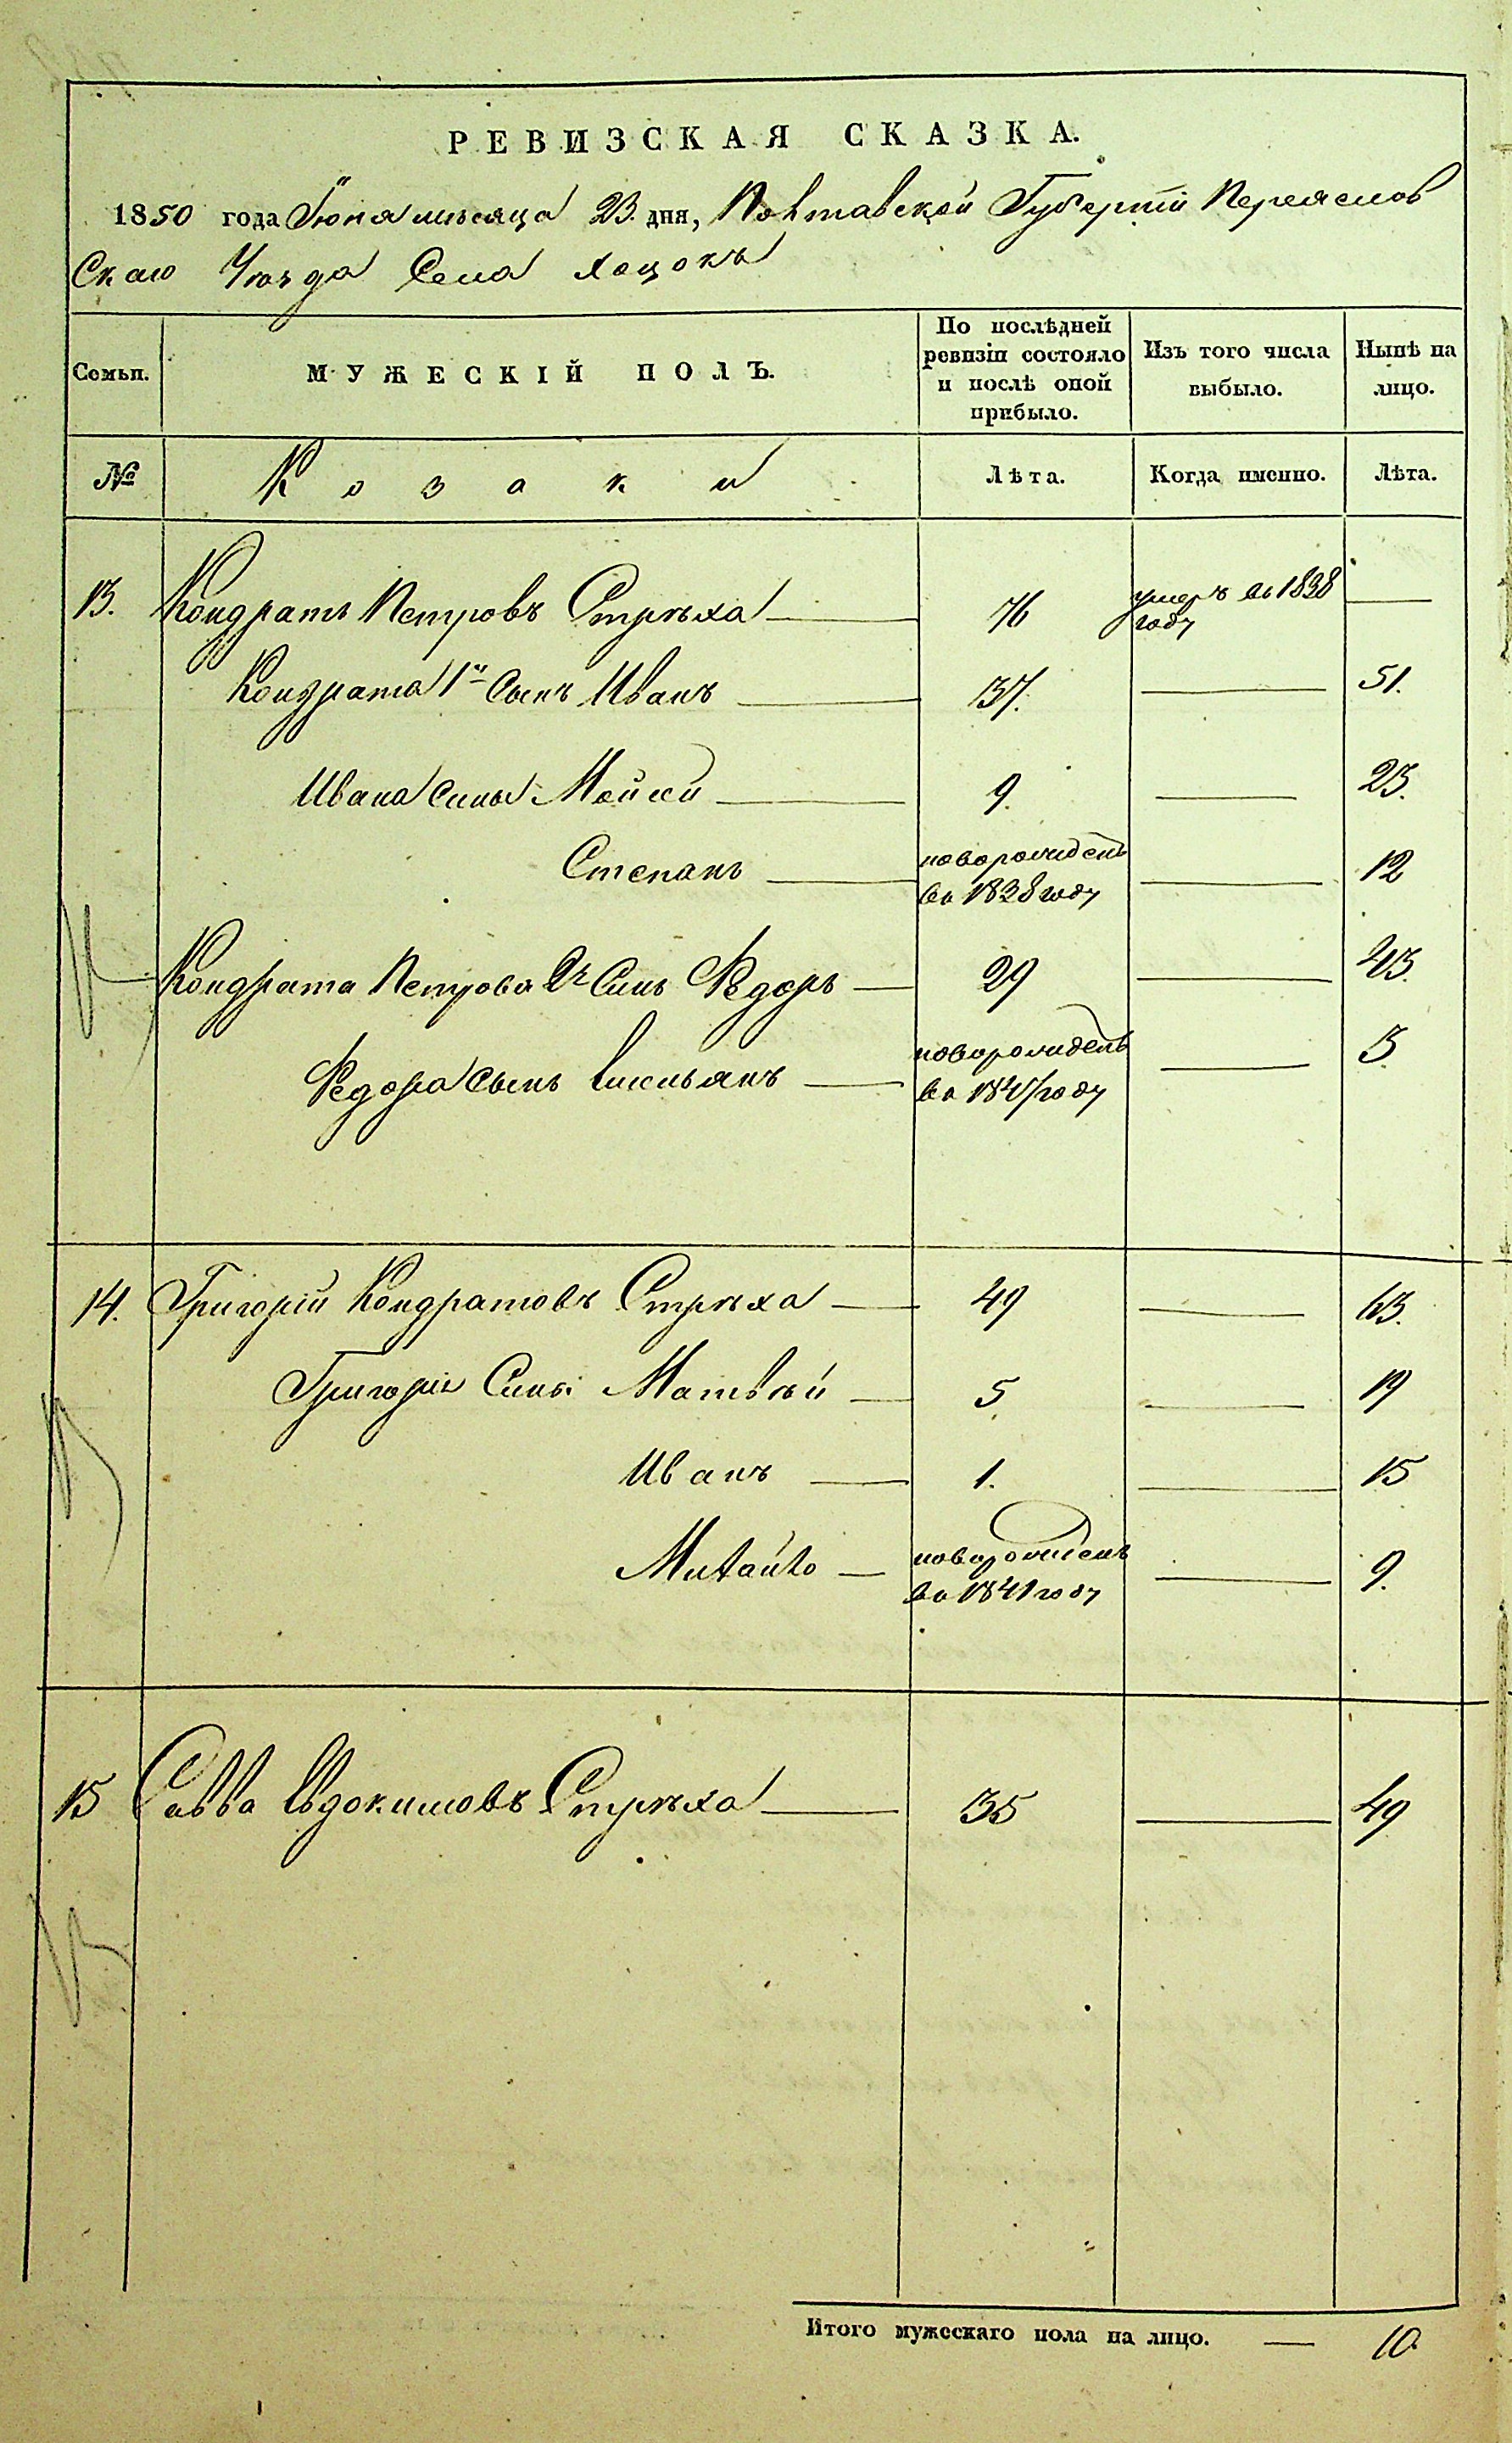 РЕВИЗСКАЯ СКАЗКА.
1850 года Іюня мѣсяца 23. дня, Полтавской Губерніи Переяслов
Скаго Уѣзда Села Хоцокъ
Семьи.
МУЖЕСКІЙ ПОЛЪ.
По послѣдней
ревизіи состояло
и послѣ оной
прибыло.
Изъ того числа
выбыло.
Нынѣ на
лицо.
№ Козаки Лѣта. Когда именно. Лѣта.
13. Кондратъ Петровъ Стрѣха — 76 умеръ въ 1838 —
году
Кондрата 1й Сынъ Иванъ — 37. — 51.
Ивана сины Мойсей — 9. — 23.
Степанъ — новорожденъ — 12
въ 1838 году
Кондрата Петрова 2й Синъ Федоръ — 29 — 43.
Федора Сынъ Емельянъ — новорожденъ — 3
въ 1847 году
14. Григорій Кондратовъ Стрѣха — 49 — 63.
Григорія Сины Матвѣй — 5 — 19
Иванъ — 1. — 15
Михайло — новорожденъ — 9.
въ 1841 году
15 Савва Евдокимовъ Стрѣха — 35 — 49
Итого мужескаго пола на лицо. — 10.